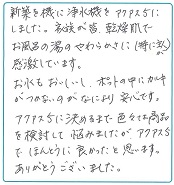 新築を機に浄水機をアクアス5に
しました。家族が皆、乾燥肌で
お風呂の湯のやわらかさに(特に妻が)
感激しています。
お水もおいしいし、ポットの中にカルキ
がつかないのがなにより安心です。
アクアス5に決めるまで色々な商品
を検討して悩みましたが、アクアス5
で ほんとうに良かったと思います。
ありがとうございました。